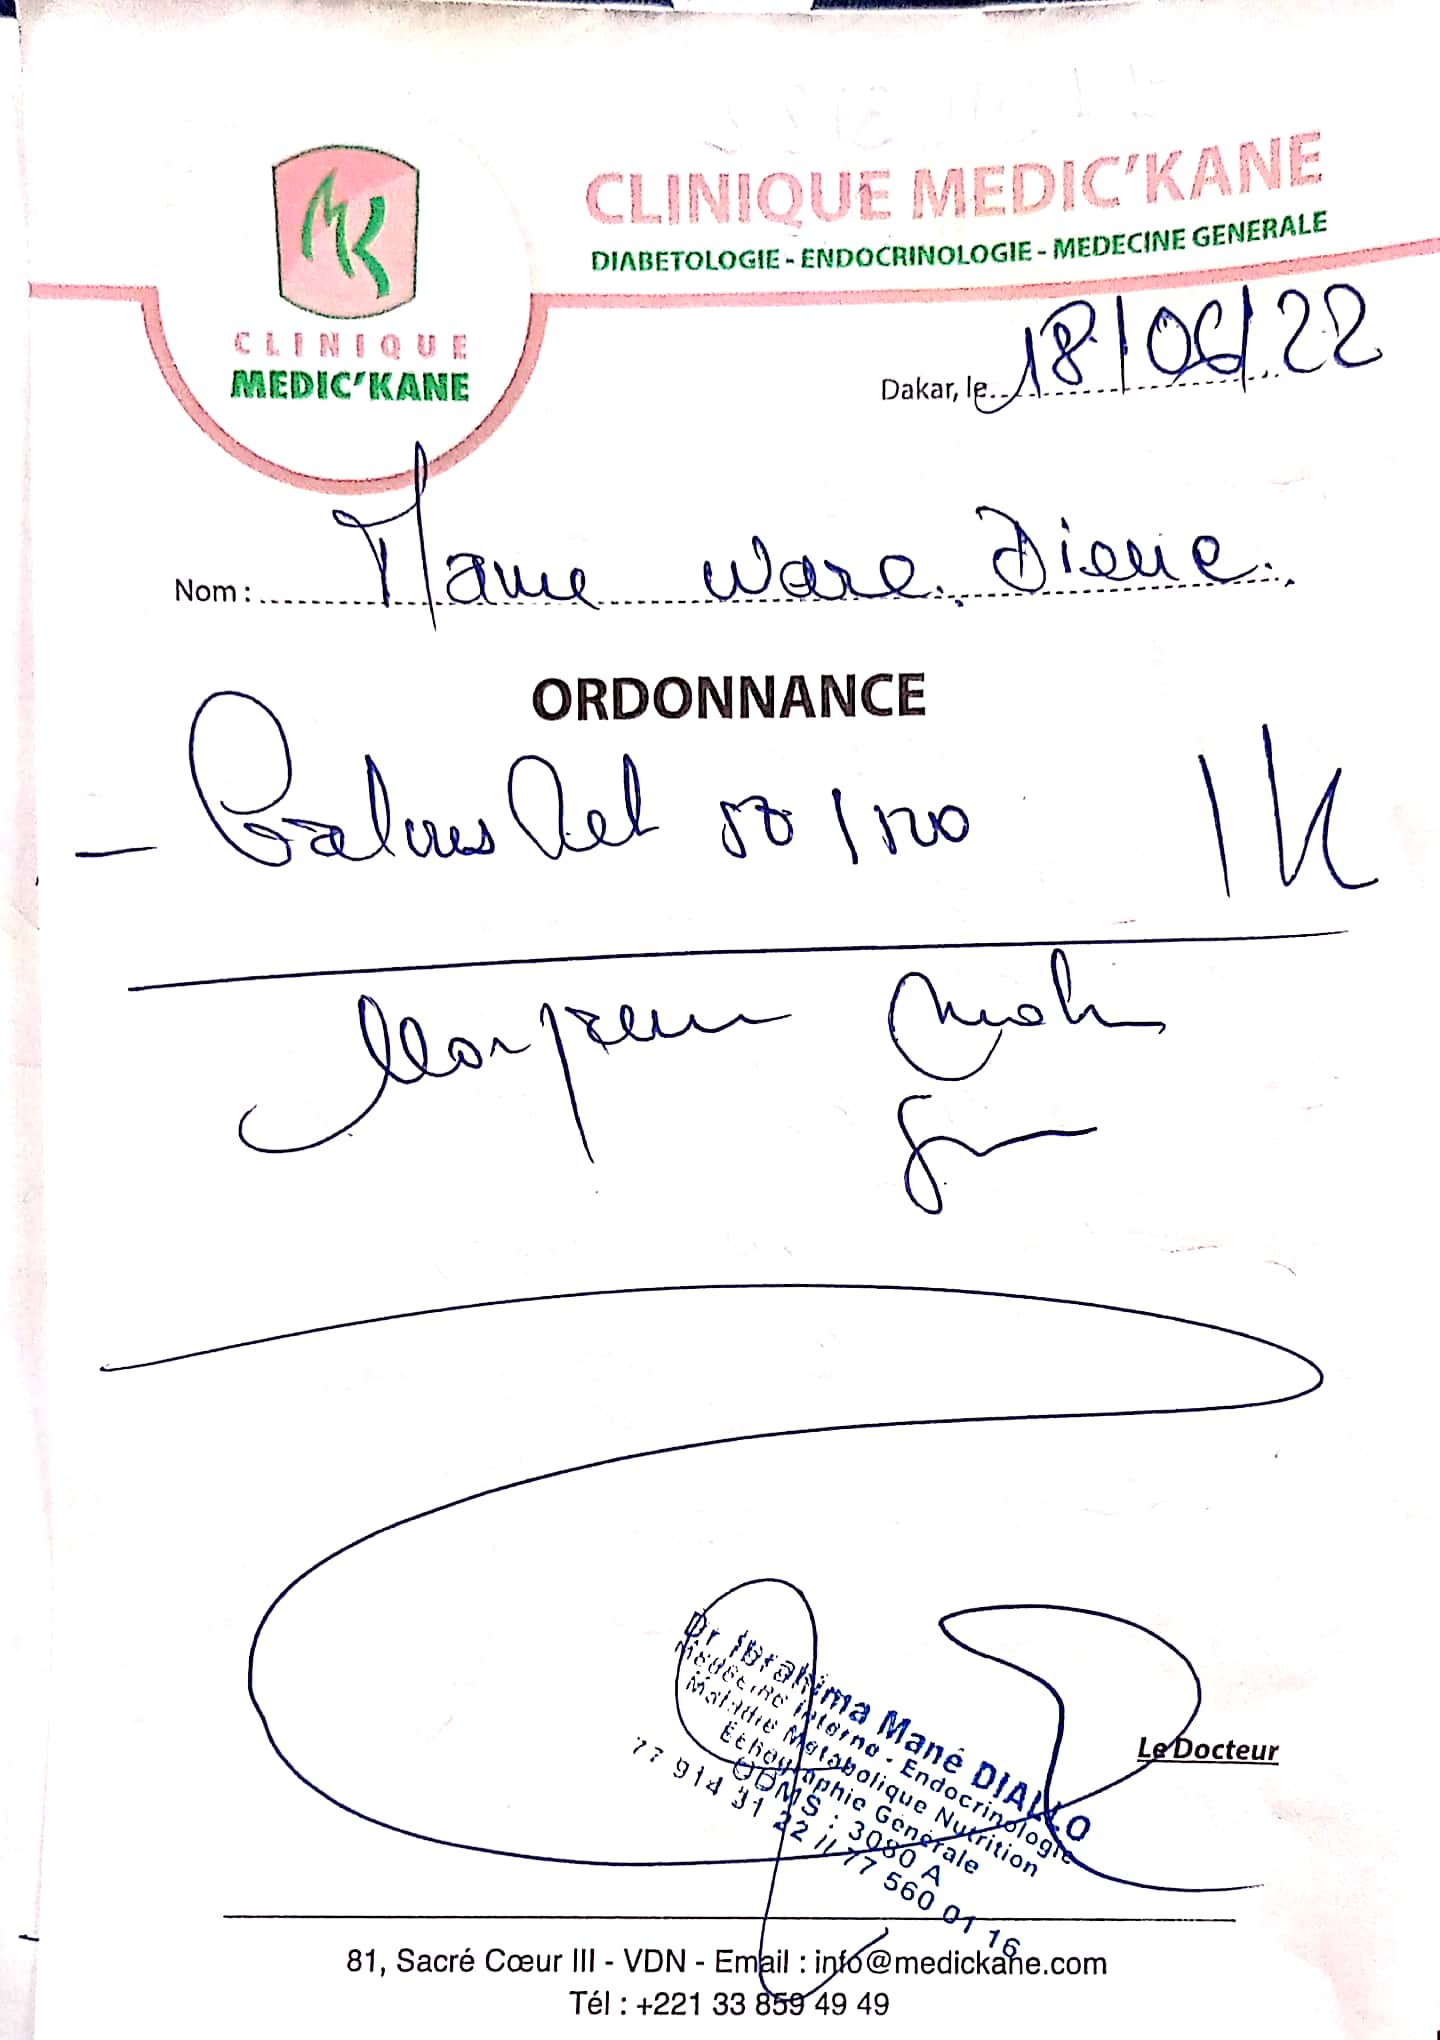 MK
CLINIQUE
MEDIC'KANE
CLINIQUE MEDIC'KANE
DIABETOLOGIE - ENDOCRINOLOGIE - MEDECINE GENERALE
Dakar, le 18/06/22
Nom : Mame Ware Diene
ORDONNANCE
- Galvus Met 50/ 1K
matin
soir
Dr Ibrahima Mané DIALLO
Médecine Interne - Endocrinologie
Maladie Métabolique Nutrition
Echographie Générale
ODMS : 3080 A
77 914 31 22 // 77 560 01 16
Le Docteur
81, Sacré Cœur III - VDN - Email : info@medickane.com
Tél : +221 33 859 49 49